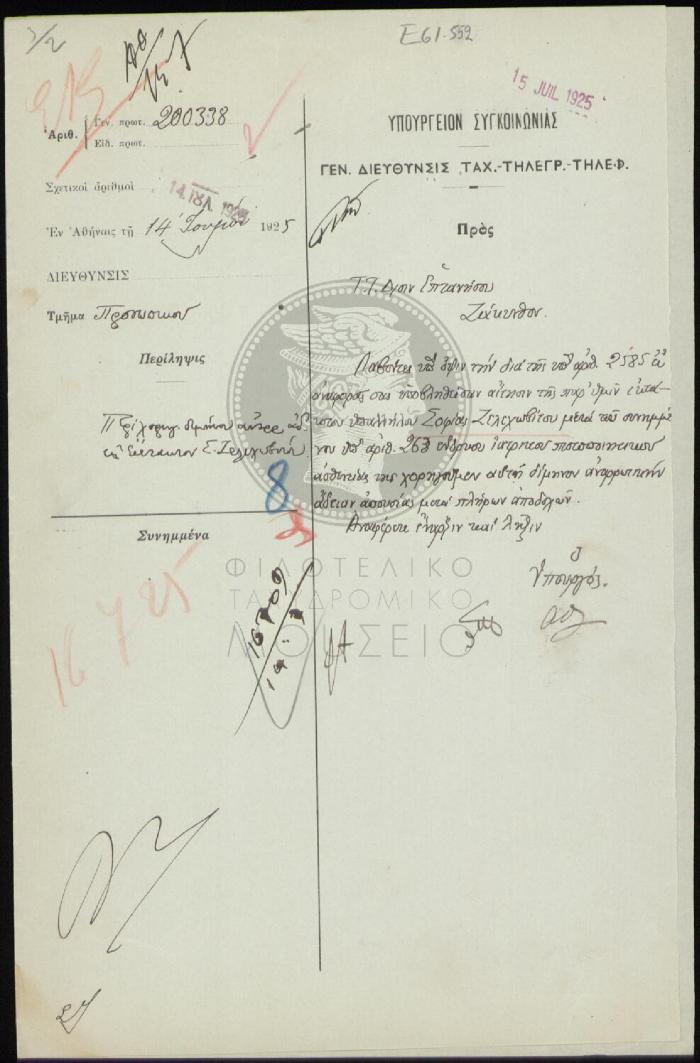 3/2
E61-552
15 JUIL 1925
Ἀριθ.
Γεν. πρωτ. 200338
Εἰδ. πρωτ.
Σχετικοὶ ἀριθμοὶ
14 ΙΟΥΛ 1925
Ἐν Ἀθήναις τῇ 14 1925
ΔΙΕΥΘΥΝΣΙΣ
Τμῆμα Προσωπικοῦ
Περίληψις
Συνημμένα
8
16 7 25
16709
ΥΠΟΥΡΓΕΙΟΝ ΣΥΓΚΟΙΝΩΝΙΑΣ
ΓΕΝ. ΔΙΕΥΘΥΝΣΙΣ ΤΑΧ.-ΤΗΛΕΓΡ.-ΤΗΛΕΦ.
Πρὸς
Τ.Τ. Δ/σιν Ἑπτανήσου
Ζάκυνθον.
Λαβόντες ὑπ' ὄψιν τὴν διὰ τῆς ὑπ' ἀριθ. 2585
ἀναφορᾶς σας ὑποβληθεῖσαν αἴτησιν τῆς παρ' ὑμῖν ἐκτά-
κτου ὑπαλλήλου Σοφίας μετὰ τοῦ συνημμέ-
νου ὑπ' ἀριθ. 263 ἐνόρκου ἰατρικοῦ πιστοποιητικοῦ
ἀσθενείας της χορηγοῦμεν αὐτῇ δίμηνον ἀναρρωτικὴν
ἄδειαν ἀπουσίας μετὰ πλήρων ἀποδοχῶν.
Ἀναφέρατε ἔναρξιν καὶ λῆξιν
Ὁ
Ὑπουργός.
ΦΙΛΟΤΕΛΙΚΟ
ΤΑΧΥΔΡΟΜΙΚΟ
ΜΟΥΣΕΙΟ